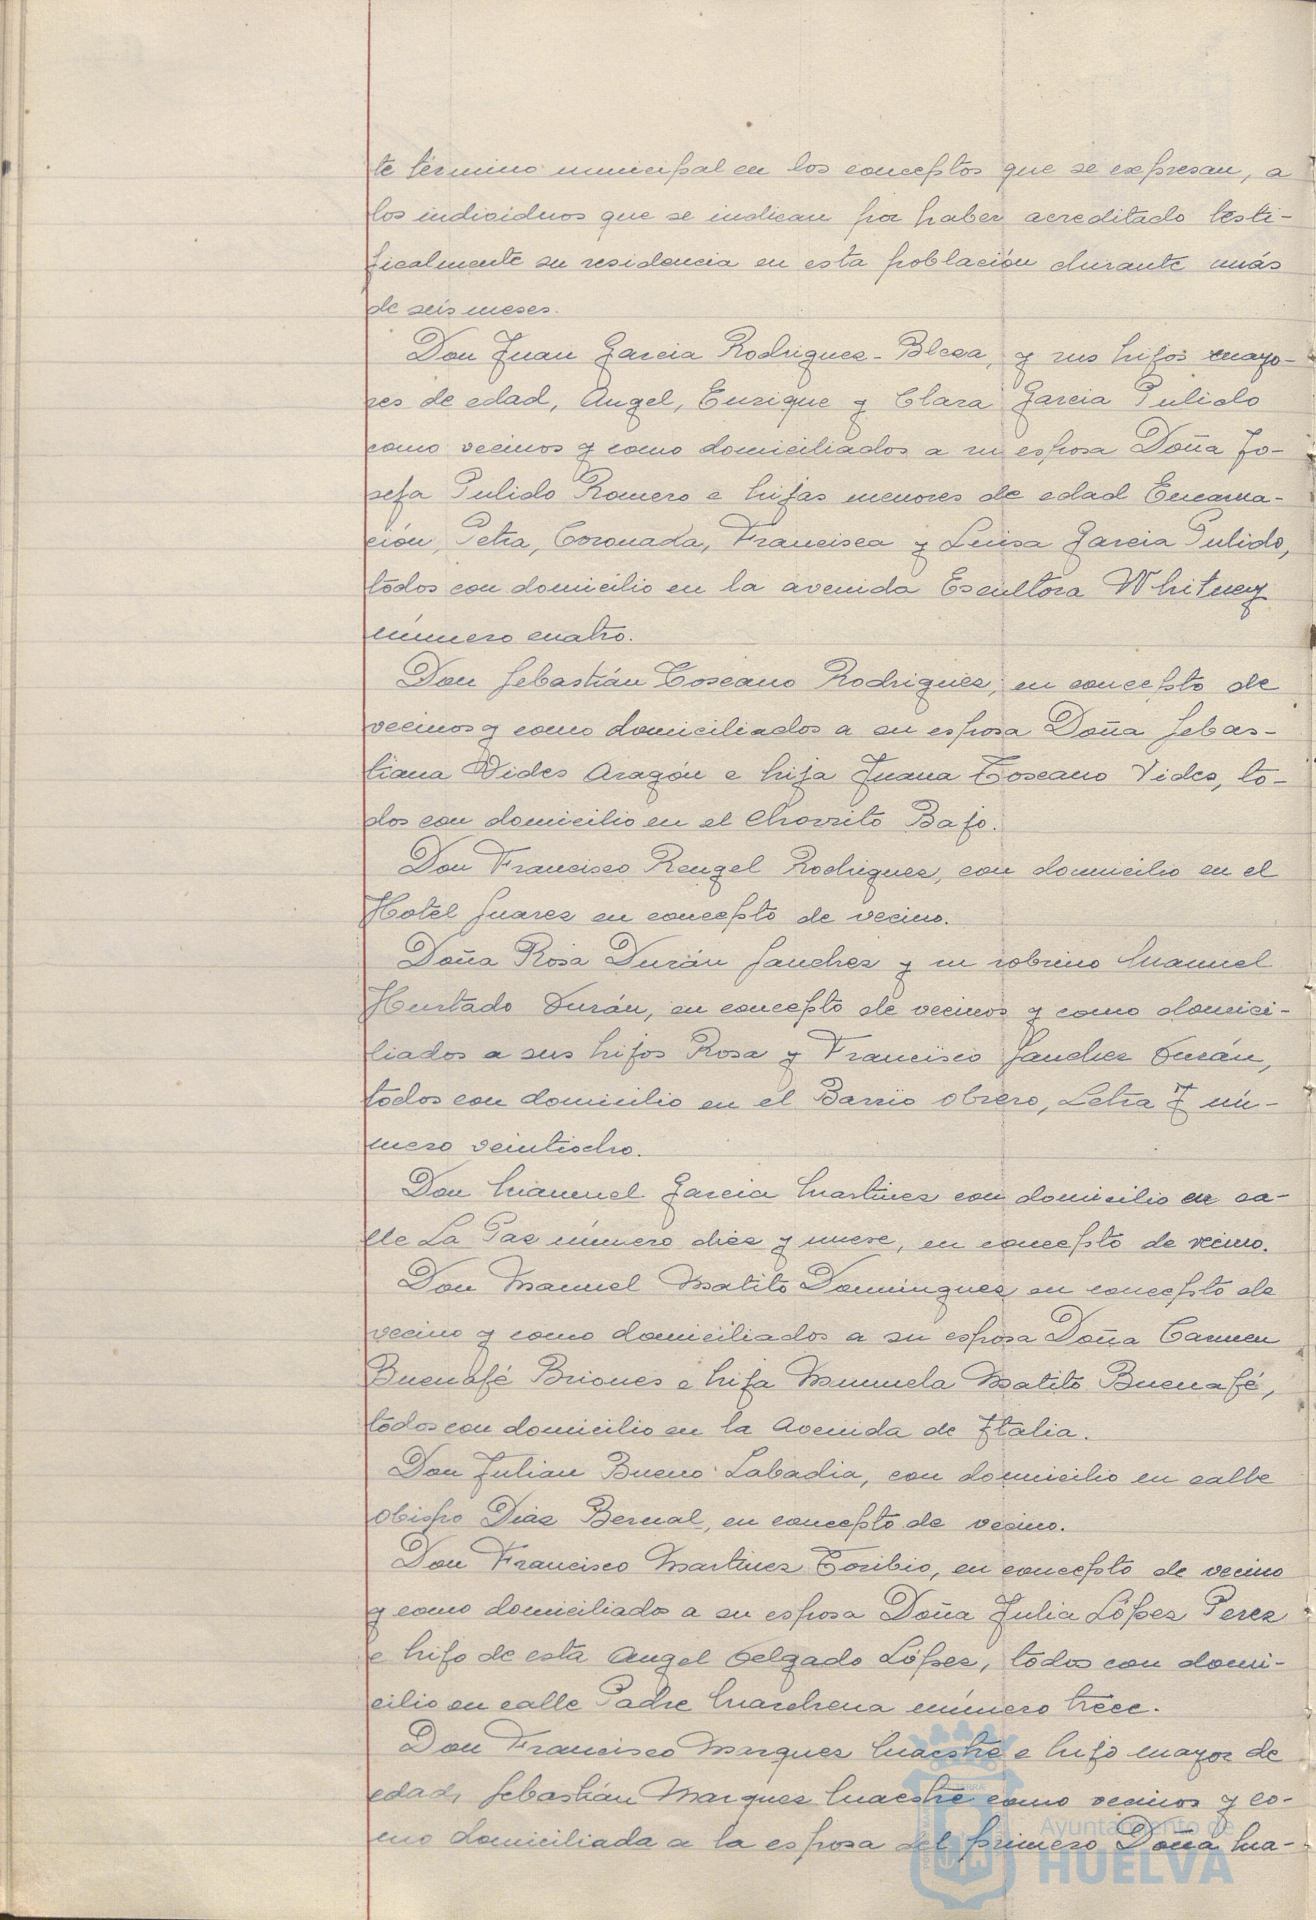 te término municipal en los conceptos que se expresan, a
los individuos que se indican por haber acreditado testi-
ficalmente su residencia en esta población durante más
de seis meses.
Don Juan Garcia Rodriguez-Blesa, y sus hijos mayo-
res de edad, Angel, Enrique y Clara Garcia Pulido
como vecinos y como domiciliados a su esposa Doña Jo-
sefa Pulido Romero e hijas menores de edad Encarna-
ción, Petra, Coronada, Francisca y Luisa Garcia Pulido,
todos con domicilio en la avenida Escultora Whitney
número cuatro.
Don Sebastián Toscano Rodriguez, en concepto de
vecinos y como domiciliados a su esposa Doña Sebas-
tiana Vides Aragón e hija Juana Toscano Vides, to-
dos con domicilio en el Chorrito Bajo.
Don Francisco Rengel Rodriguez, con domicilio en el
Hotel Juarez en concepto de vecino.
Doña Rosa Durán Sanchez y su sobrino Manuel
Hurtado Durán, en concepto de vecinos y como domici-
liados a sus hijos Rosa y Francisco Sanchez Durán,
todos con domicilio en el Barrio Obrero, Letra J nú-
mero veintiocho.
Don Manuel Garcia Martinez con domicilio en ca-
lle La Paz número diez y nueve, en concepto de vecino.
Don Manuel Matito Dominguez en concepto de
vecino y como domiciliados a su esposa Doña Carmen
Buenafé Briones e hija Manuela Matito Buenafé,
todos con domicilio en la Avenida de Italia.
Don Julian Bueno Labadia, con domicilio en calle
Obispo Diaz Bernal, en concepto de vecino.
Don Francisco Martinez Toribio, en concepto de vecino
y como domiciliado a su esposa Doña Julia López Perez
e hijo de esta Angel Delgado López, todos con domi-
cilio en calle Padre Marchena número trece.
Don Francisco Marquez Maestre e hijo mayor de
edad, Sebastián Marquez Maestre como vecinos y co-
mo domiciliada a la esposa del primero Doña Ma-
Ayuntamiento de
HUELVA